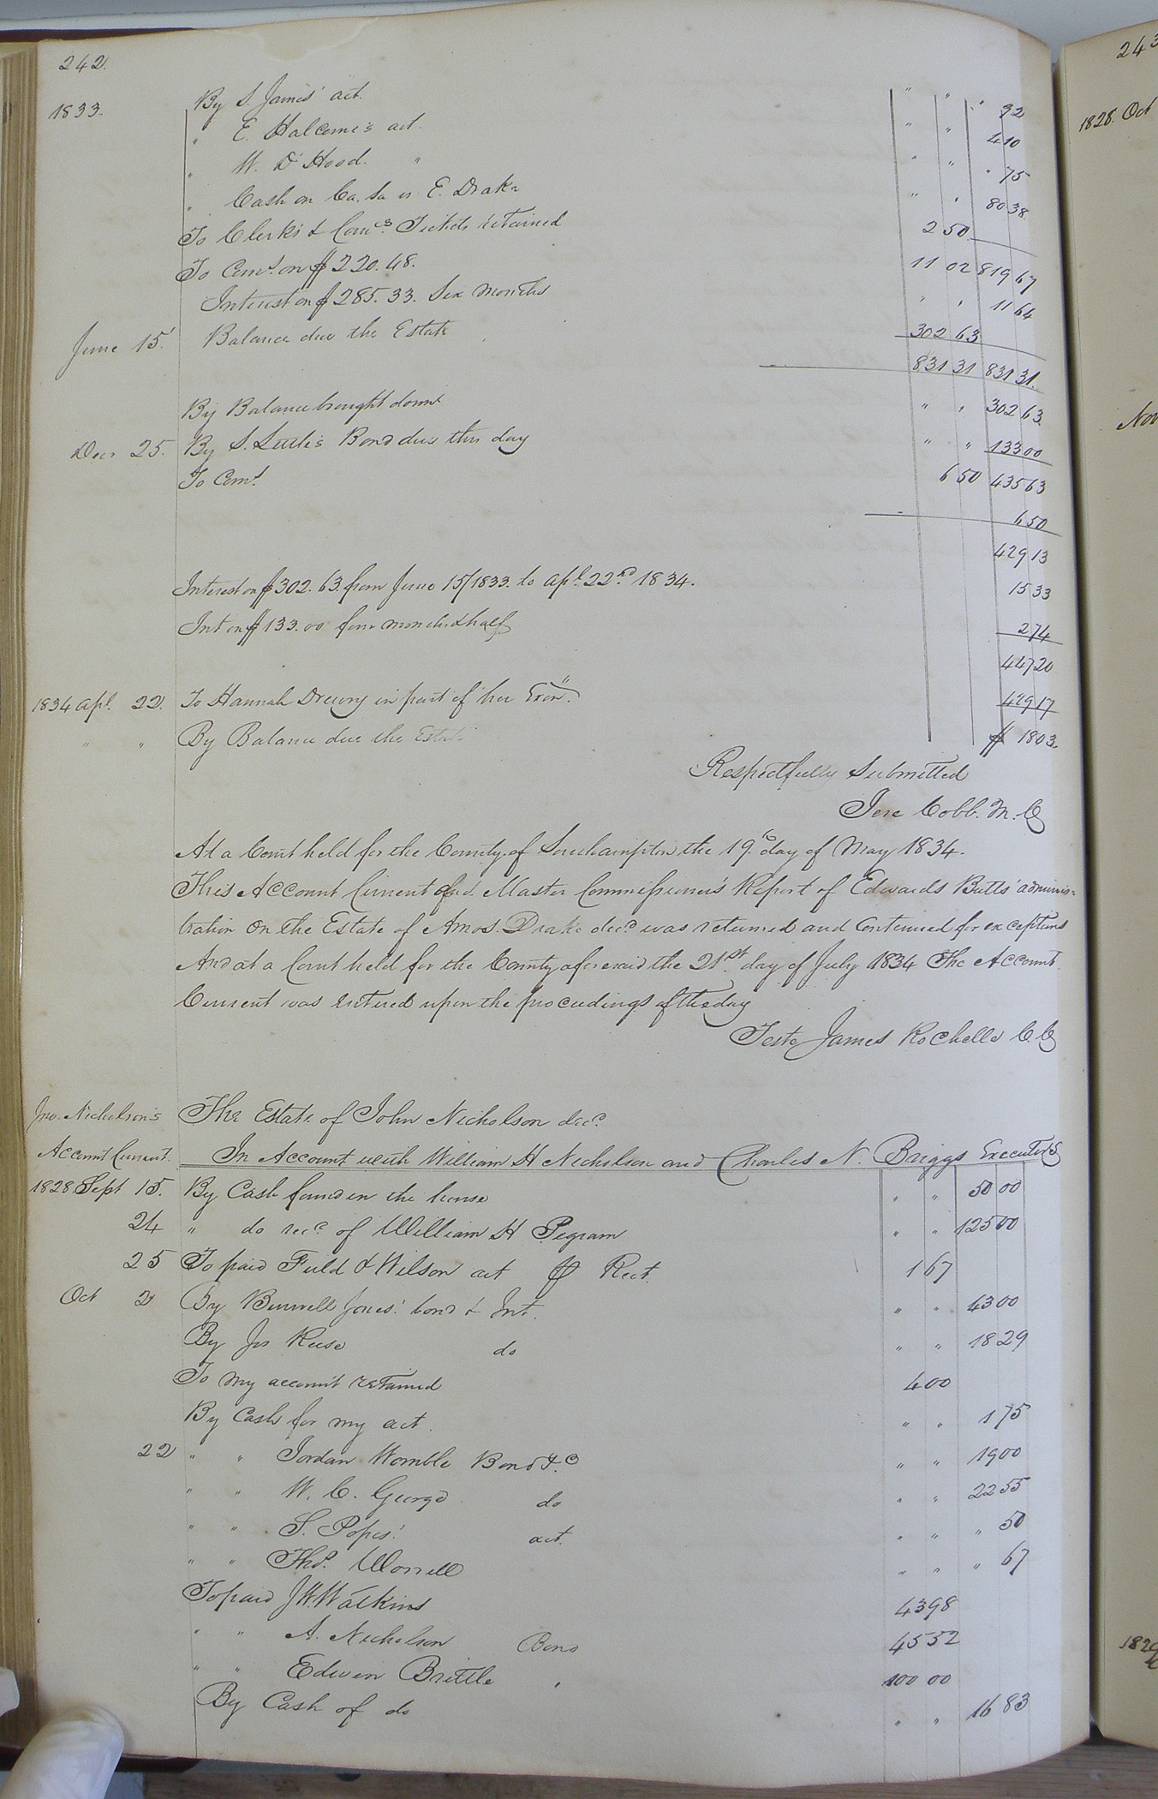 242.
1833. By S. James' act. " " " 32
" E. Halcome's act. " " 4 10
" W. D Hood. " " " " 75
" Cash on Ca. Sa vs E. Drake " " 80 38
To Clerk's & Com.rs Tickets retained 2 50
To Com.s on $220.48. 11 02 819 67
Interest on $285.33. Six months " " 11 64
June 15. Balance due the Estate 302 63
831 31 831 31.
By Balance brought down " " 302 63.
Decr 25. By S. Little's Bond due this day " " 133 00
To Com.s 6 50 435 63
6 50
429 13
Interest on $302.63. from June 15/1833. to Apl. 22nd 1834. 15 33
Int on $133.00 four months & half 2 74
447 20
1834 Apl. 22. To Hannah Drewry in part of her Exon. 429 17
" " By Balance due the Estate $ 18 03.
Respectfully Submitted
Jere Cobb. M. C
At a Court held for the County of Southampton the 19th day of May 1834.
This Account Current and Master Commissioner's Report of Edwards Butts' adminis-
tration on the Estate of Amos Drake decd was returned and Continued for exceptions
And at a Court held for the County aforesaid the 21st day of July 1834 The Account
Current was entered upon the proceedings of the day
Teste James Rochelle C C
Jno. Nicholson's The Estate of John Nicholson decd
Account Current. In Account with William H Nicholson and Charles N. Briggs Executors
1828 Sept 15. By Cash found in the house " " 50 00
24 " do recd of William H Pegram " " 125 00
25 To paid Field & Wilson act Rect. 1 67
Oct 2 By Burwell Jones' bond & Int. " " 43 00
By Jos Reese do " " 18 29
To my account retained 4 00
By Cash for my act. " " 1 75
22 " " Jordan Womble Bond &c " " 19 00
" " W. C. George do " " 22 55
" " S. Popes' act. " " " 50
" " Thos. Worrell " " " 67
To paid J W. Watkins 43 98
" " A. Nicholson Bond 45 52
" " Edwin Brittle " 100 00
By Cash of do " " 16 83
243
1828 Oct
Nov